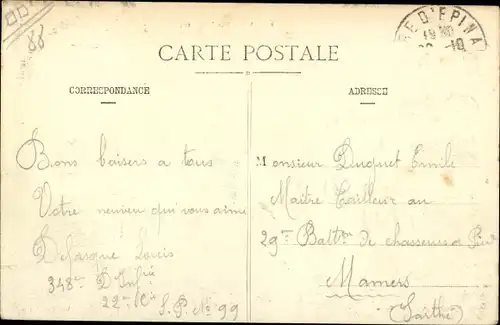 88
RE D'EPINA
CARTE POSTALE
CORRESPONDANCE
ADRESSE
Bons baisers a tous
Votre neuveu qui vous aime
Defasque Louis
348e D'Infrie
22me Cie S.P. No 99
Monsieur Duquet Emile
Maitre Tailleur au
29me Batton de chasseurs a Pied
Mamers
(Sarthe)